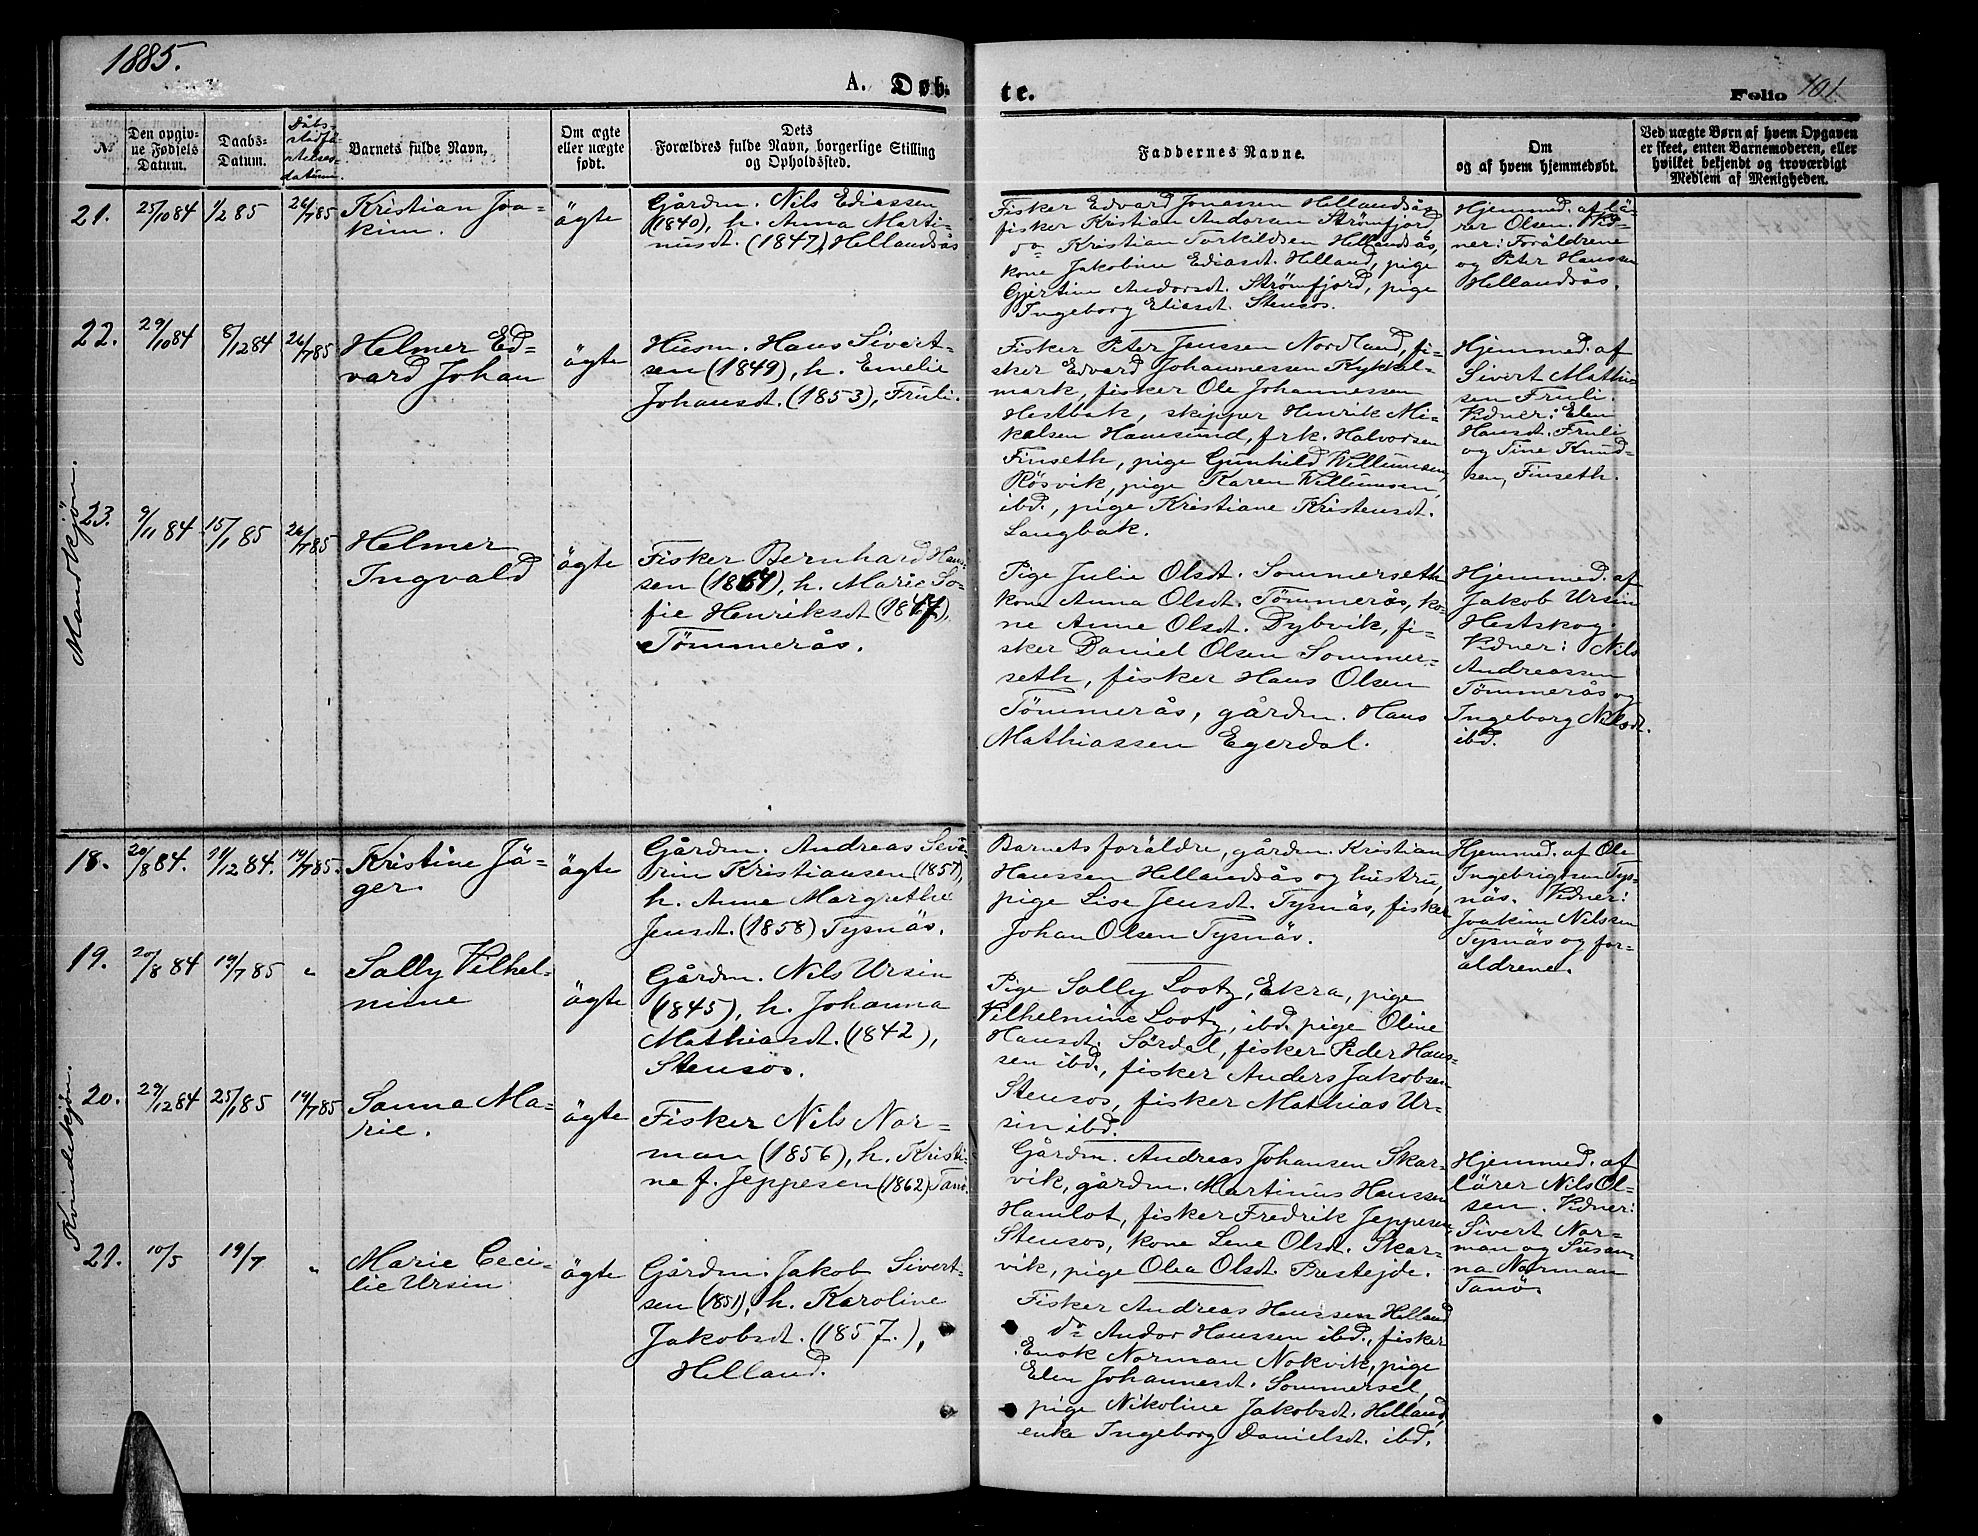 1885.
A. Døb-
te.
Folio 101.
№
Den opgiv-
ne Fødsels
Datum.
Daabs-
Datum.
Dåbs-
stadfæ-
stelses-
datum.
Barnets fulde Navn,
Om ægte
eller uægte
født.
Dets
Forældres fulde Navn, borgerlige Stilling
og Opholdssted.
Faddernes Navne.
Om
og af hvem hjemmedøbt.
Ved uægte Børn af hvem Opgaven
er skeet, enten Barnemoderen, eller
hvilket bekjendt og troværdigt
Medlem af Menigheden.
Mandkjøn.
21.
25/10 84
1/2 85
26/7 85
Kristian Joa-
kim.
ägte
Gårdm. Nils Ediassen
(1840), h. Anna Marti-
nusdt. (1847), Hellandsås
Fisker Edvard Jonassen Hellandsås,
fisker Kristian Andorsen Strømfjord,
do Kristian Torkildsen Hellandsås,
kone Jakobine Ediasdt. Helland, pige
Gjertine Andorsdt. Strömfjord, pige
Ingeborg Eliasdt. Stensos.
Hjemmed. af lä-
rer Olsen. Vid-
ner: Foräldrene
og Peter Hanssen
Hellandsås.
22.
29/10 84
8/12 84
26/7 85
Helmer Ed-
vard Johan
ägte
Husm. Hans Sivert-
sen (1849), h. Emelie
Johansdt. (1853), Fruli.
Fisker Peter Jenssen Nordland, fi-
sker Edvard Johannessen Kykkel-
mark, fisker Ole Johannessen
Hestbak, skipper Henrik Mi-
kalsen Hamsund, frk. Halvorsen
Finseth, pige Gunhild Willumsen,
Rösvik, pige Karen Willumsen,
ibd., pige Kristiane Kristensdt.
Langbak.
Hjemmed. af
Sivert Mathi-
sen Fruli.
Vidner: Elen
Hansdt. Fruli
og Tine Knud-
sen, Finseth.
23.
9/11 84
15/1 85
26/7 85
Helmer
Ingvald
ägte
Fisker Bernhard Han-
sen (1864), h. Marie So-
fie Henriksdt (1847),
Tömmerås.
Pige Julie Olsdt. Sommerseth
kone Anna Olsdt. Tömmerås, ko-
ne Anne Olsdt. Dybvik, fi-
sker Daniel Olsen Sommer-
seth, fisker Hans Olsen
Tömmerås, gårdm. Hans
Mathiassen Egerdal.
Hjemmed. af
Jakob Ursin
Hestskog.
Vidner: Nils
Andreassen
Tömmerås og
Ingeborg Nilsdt.
ibd.
Kvindekjøn.
18.
20/8 84.
14/12 84.
19/7 85.
Kristine Jä-
ger.
ägte
Gårdm. Andreas Seve-
rin Kristiansen (1857),
h. Anne Margrethe
Jensdt. (1858) Tysnäs.
Barnets foräldre, gårdm. Kristian
Hanssen Hellandsås og hustru,
pige Lise Jensdt. Tysnäs, fisker
Johan Olsen Tysnäs.
Hjemmed. af Ole
Ingebrigtsen Tys-
näs. Vidner:
Joakim Nilssen
Tysnäs og for-
äldrene.
19.
20/8 84
19/7 85
"
Sally Vilhel-
mine
ägte
Gårdm. Nils Ursin
(1845), h. Johanna
Mathiasdt. (1842),
Stensos.
Pige Sally Lootz, Ekra, pige
Vilhelmine Lootz, ibd. pige Oline
Hansdt. Sördal, fisker Peder Hans-
sen ibd., fisker Anders Jakobsen
Stensos, fisker Mathias Ur-
sin ibd.
20.
29/12 84
25/1 85
19/7 85
Sanna Ma-
rie.
ägte
Fisker Nils Nor-
man (1856), h. Kristi-
ne f. Jeppesen (1862) Tanö.
Gårdm. Andreas Johansen Skar-
vik, gårdm. Martinus Hanssen
Hamlot, fisker Fredrik Jeppesen,
Stensos, kone Lene Olsdt. Skar-
vik, pige Olea Olsdt. Prestejde.
Hjemmed. af
lärer Nils Ol-
sen. Vidner:
Sivert Nor-
man og Susan-
na Norman
Tanö.
21.
10/5
19/7
"
Marie Ceci-
lie Ursin
ägte
Gårdm. Jakob Sivert-
sen (1851), h. Karoline
Jakobsdt. (1857.),
Helland.
Fisker Andreas Hanssen Helland
do Andor Hanssen ibd., fisker
Enok Norman Nokvik, pige
Elen Johannesdt. Sommersel,
pige Nikoline Jakobsdt. Helland,
enke Ingeborg Danielsdt. ibd.